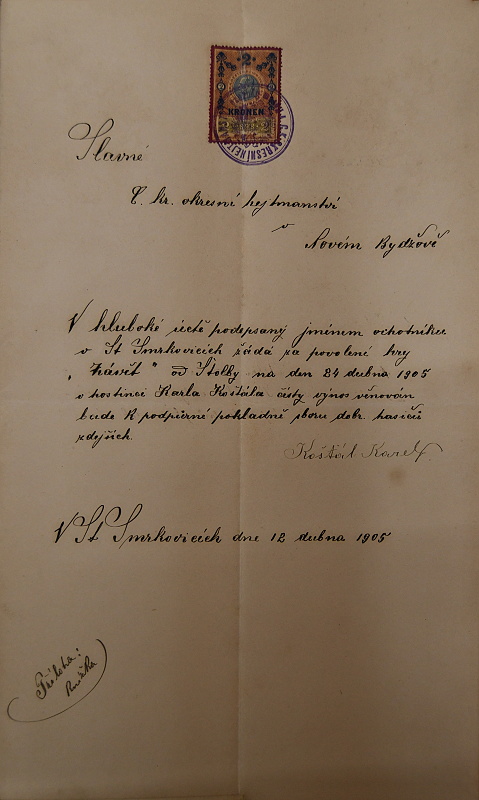 2
KRONEN
Slavné
C. kr. okresní hejtmanství
v
Novém Bydžově
V hluboké úctě podepsaný jménem ochotníků
v St Smrkovicích žádá za povolení hry
„Závěť" od Štolby na den 24 dubna 1905
v hostinci Karla Košťála čistý výnos věnován
bude k podpůrné pokladně sboru dobr. hasičů
zdejších.
Košťál Karel
V St Smrkovicích dne 12 dubna 1905
Příloha: